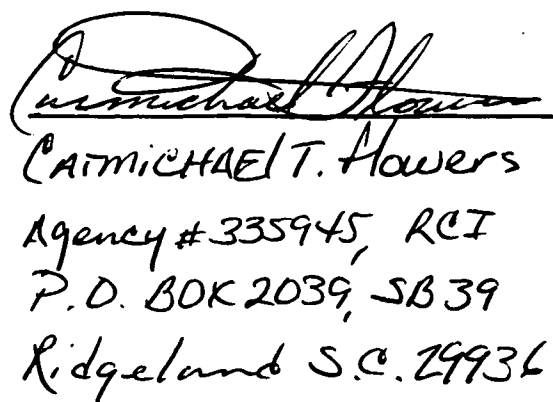 Carmichael Flowers
CArmiCHAEl T. flowers
Agency # 335945, RCI
P.O. BOX 2039, SB 39
Ridgeland S.C. 29936